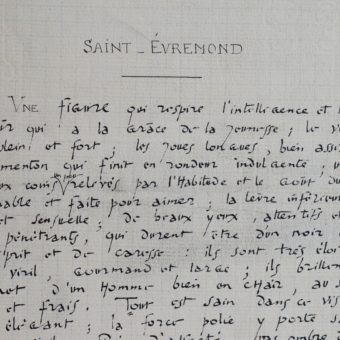 SAINT-ÉVREMOND
UNE figure qui respire l'intelligence et
qui a la grâce de la jeunesse ; le
plein et fort ; les joues longues, bien
menton qui finit en rondeur indulgente,
coins relevés par l'Habitude et le goût du
able et faite pour aimer ; la lèvre inférieure
et sensuelle ; de beaux yeux, attentifs et
pénétrants, qui durent être d'un noir
prit et de caresse : ils sont très
viril, gourmand et large ; ils
et d'un Homme bien en CHAIR, au
et frais. Tout est sain dans ce
élégant ; la force polie y porte